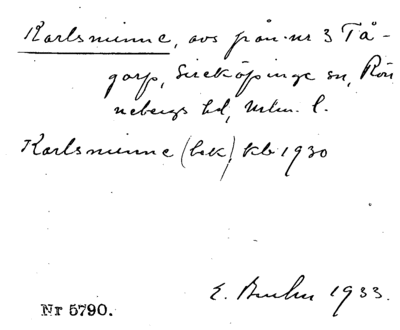 Karlsminne, avs från nr 3 Tå-
garp, Sireköpinge sn, Rön
nebergs hd, Mlm. l.
Karlsminne (bek) kb 1930
E. 1933.
Nr 5790.